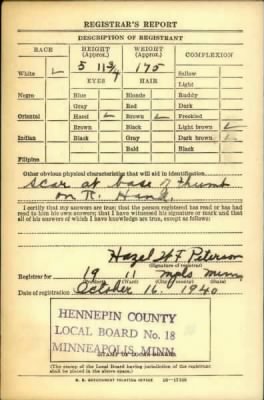 REGISTRAR'S REPORT
DESCRIPTION OF REGISTRANT
RACE HEIGHT (Approx.) WEIGHT (Approx.) COMPLEXION
White 5 11 3/4 175 Sallow
EYES HAIR Light
Negro Blue Blonde Ruddy
Gray Red Dark
Oriental Hazel Brown Freckled
Brown Black Light brown
Indian Black Gray Dark brown
Bald Black
Filipino
Other obvious physical characteristics that will aid in identification
Scar at base of thumb
on R. Hand.
I certify that my answers are true; that the person registered has read or has had read to him his own answers; that I have witnessed his signature or mark and that all of his answers of which I have knowledge are true, except as follows:
Hazel W F Peterson
(Signature of registrar)
Registrar for 19 11 Mpls Minn
(Precinct) (Ward) (City or county) (State)
Date of registration October 16, 1940
HENNEPIN COUNTY
LOCAL BOARD No. 18
MINNEAPOLIS, MINN.
(STAMP OF LOCAL BOARD)
(The stamp of the Local Board having jurisdiction of the registrant shall be placed in the above space.)
U. S. GOVERNMENT PRINTING OFFICE 16—17105